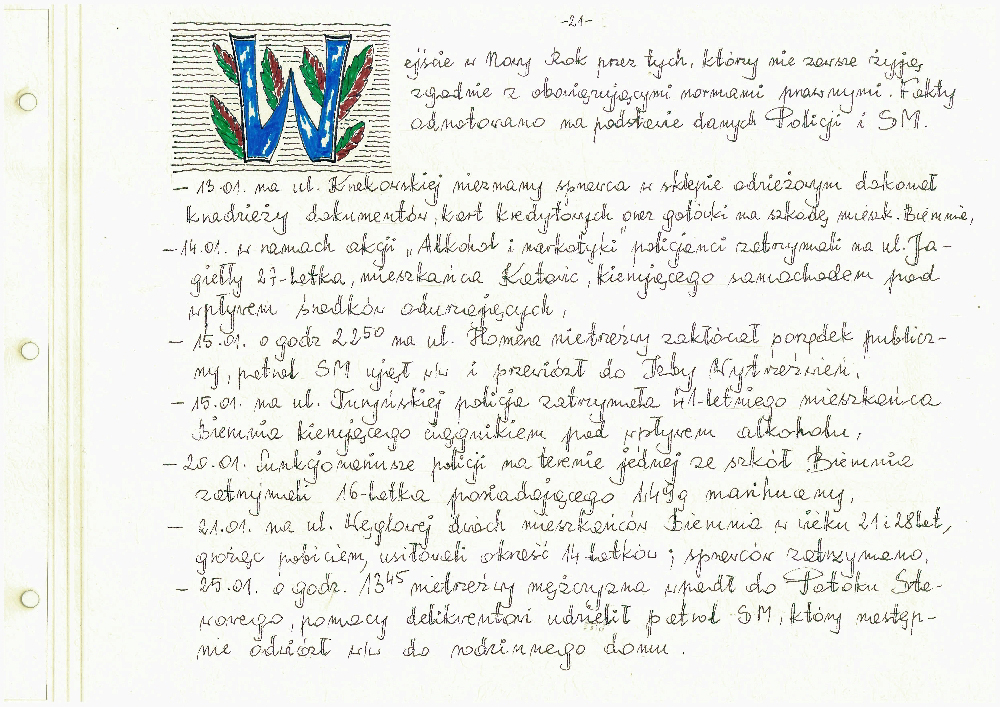 -21-
W
ejście w Nowy Rok przez tych, którzy nie zawsze żyją
zgodnie z obowiązującymi normami prawnymi. Fakty
odnotowano na podstawie danych Policji i SM.
- 13.01. na ul. Krakowskiej nieznany sprawca w sklepie odzieżowym dokonał
kradzieży dokumentów, kart kredytowych oraz gotówki na szkodę mieszk. Bierunia,
- 14.01. w ramach akcji „Alkohol i narkotyki" policjanci zatrzymali na ul. Ja-
giełły 27-latka, mieszkańca Katowic, kierującego samochodem pod
wpływem środków odurzających,
- 15.01. o godz 22⁵⁰ na ul. Homera nietrzeźwy zakłócał porządek publicz-
ny, patrol SM ujął w/w i przewiózł do Izby Wytrzeźwień,
- 15.01. na ul. Turyńskiej policja zatrzymała 41-letniego mieszkańca
Bierunia kierującego ciągnikiem pod wpływem alkoholu,
- 20.01. funkcjonariusze policji na terenie jednej ze szkół Bierunia
zatrzymali 16-latka posiadającego 1,49g marihuany,
- 21.01. na ul. Węglowej dwóch mieszkańców Bierunia w wieku 21 i 28 lat,
grożąc pobiciem, usiłowali okraść 14-latków; sprawców zatrzymano,
- 25.01. o godz. 13⁴⁵ nietrzeźwy mężczyzna wpadł do Potoku Sta-
wowego, pomocy delikwentowi udzielił patrol SM, który następ-
nie odwiózł w/w do rodzinnego domu.